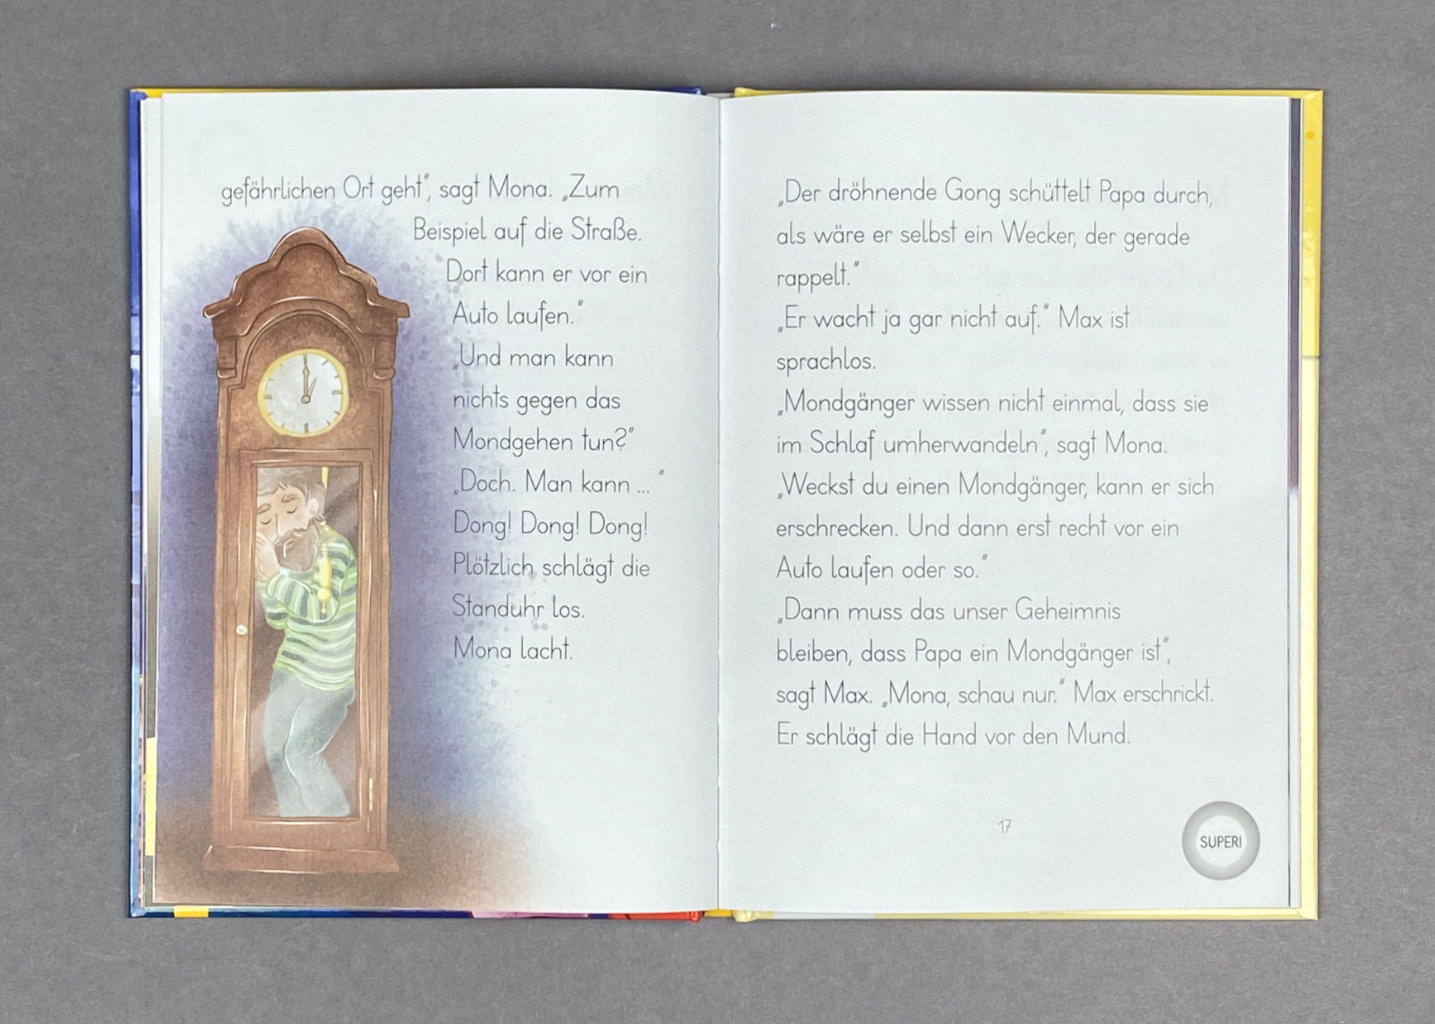 gefährlichen Ort geht“, sagt Mona. „Zum
Beispiel auf die Straße.
Dort kann er vor ein
Auto laufen.“
„Und man kann
nichts gegen das
Mondgehen tun?“
„Doch. Man kann ... “
Dong! Dong! Dong!
Plötzlich schlägt die
Standuhr los.
Mona lacht.
„Der dröhnende Gong schüttelt Papa durch,
als wäre er selbst ein Wecker, der gerade
rappelt.“
„Er wacht ja gar nicht auf.“ Max ist
sprachlos.
„Mondgänger wissen nicht einmal, dass sie
im Schlaf umherwandeln“, sagt Mona.
„Weckst du einen Mondgänger, kann er sich
erschrecken. Und dann erst recht vor ein
Auto laufen oder so.“
„Dann muss das unser Geheimnis
bleiben, dass Papa ein Mondgänger ist“,
sagt Max. „Mona, schau nur.“ Max erschrickt.
Er schlägt die Hand vor den Mund.
17
SUPER!